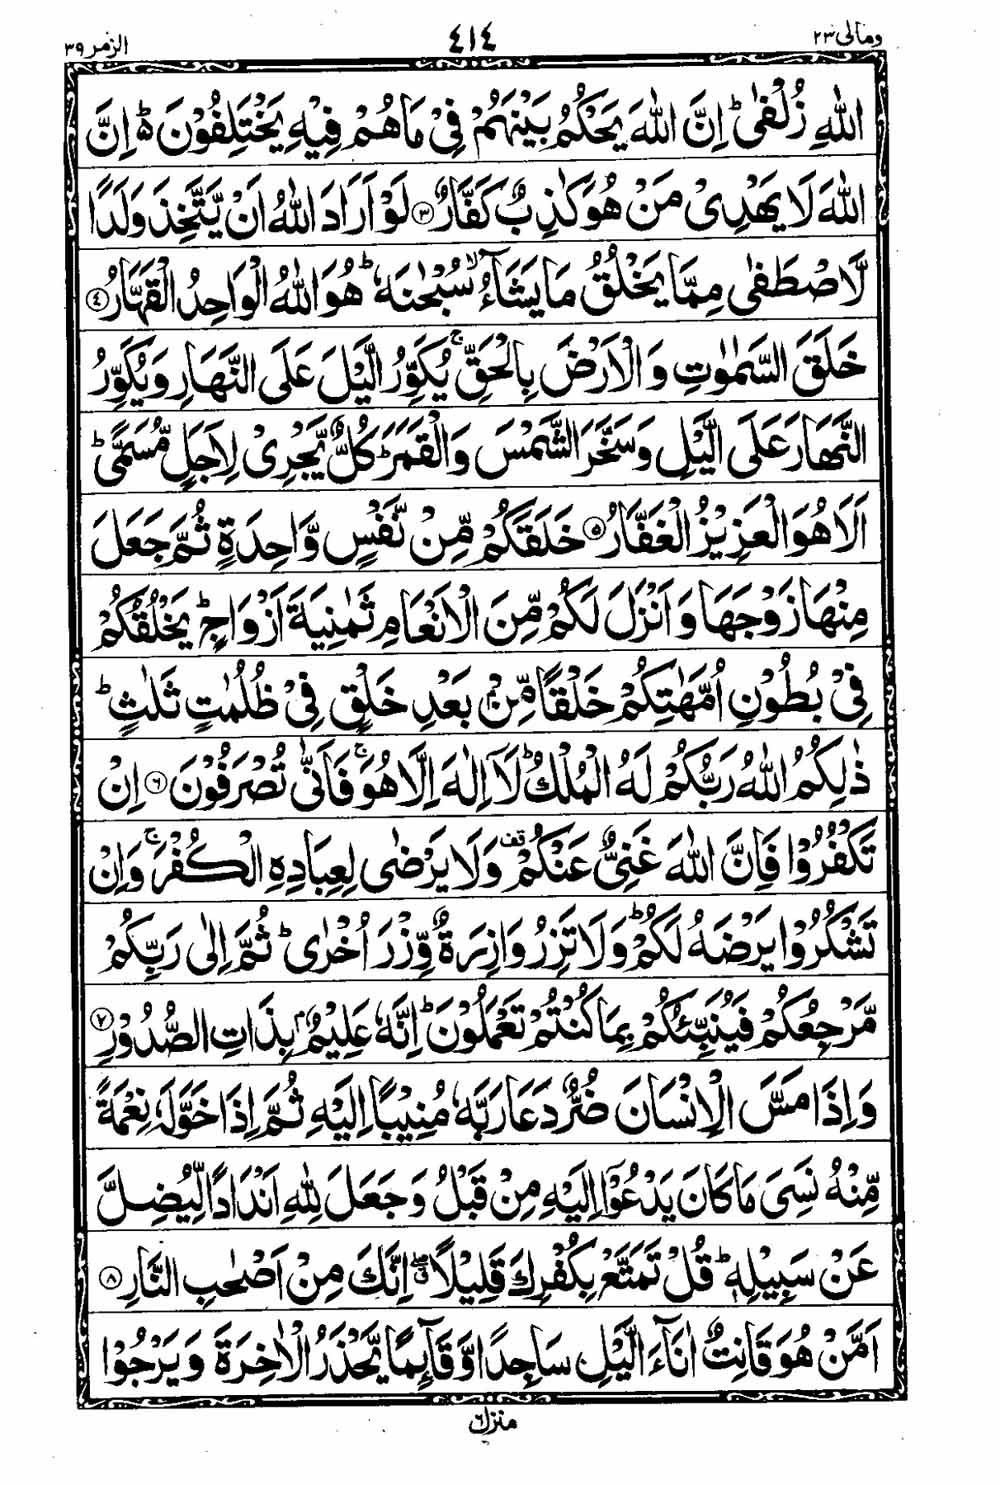 ومالی ٢٣ ٤١٤ الزمر ٣٩
اللّٰهِ زُلْفٰی ؕ اِنَّ اللّٰهَ یَحْكُمُ بَیْنَهُمْ فِیْ مَا هُمْ فِیْهِ یَخْتَلِفُوْنَ ؕ۬ اِنَّ
اللّٰهَ لَا یَهْدِیْ مَنْ هُوَ كٰذِبٌ كَفَّارٌ ۝٣ لَوْ اَرَادَ اللّٰهُ اَنْ یَّتَّخِذَ وَلَدًا
لَّاصْطَفٰی مِمَّا یَخْلُقُ مَا یَشَآءُ ۙ سُبْحٰنَهٗ ؕ هُوَ اللّٰهُ الْوَاحِدُ الْقَهَّارُ ۝٤
خَلَقَ السَّمٰوٰتِ وَالْاَرْضَ بِالْحَقِّ ۚ یُكَوِّرُ الَّیْلَ عَلَی النَّهَارِ وَیُكَوِّرُ
النَّهَارَ عَلَی الَّیْلِ وَسَخَّرَ الشَّمْسَ وَالْقَمَرَ ؕ كُلٌّ یَّجْرِیْ لِاَجَلٍ مُّسَمًّی ؕ
اَلَا هُوَ الْعَزِیْزُ الْغَفَّارُ ۝٥ خَلَقَكُمْ مِّنْ نَّفْسٍ وَّاحِدَةٍ ثُمَّ جَعَلَ
مِنْهَا زَوْجَهَا وَاَنْزَلَ لَكُمْ مِّنَ الْاَنْعَامِ ثَمٰنِیَةَ اَزْوَاجٍ ؕ یَخْلُقُكُمْ
فِیْ بُطُوْنِ اُمَّهٰتِكُمْ خَلْقًا مِّنْۢ بَعْدِ خَلْقٍ فِیْ ظُلُمٰتٍ ثَلٰثٍ ؕ
ذٰلِكُمُ اللّٰهُ رَبُّكُمْ لَهُ الْمُلْكُ ؕ لَاۤ اِلٰهَ اِلَّا هُوَ ۚ فَاَنّٰی تُصْرَفُوْنَ ۝٦ اِنْ
تَكْفُرُوْا فَاِنَّ اللّٰهَ غَنِیٌّ عَنْكُمْ ۫ وَلَا یَرْضٰی لِعِبَادِهِ الْكُفْرَ ۚ وَاِنْ
تَشْكُرُوْا یَرْضَهُ لَكُمْ ؕ وَلَا تَزِرُ وَازِرَةٌ وِّزْرَ اُخْرٰی ؕ ثُمَّ اِلٰی رَبِّكُمْ
مَّرْجِعُكُمْ فَیُنَبِّئُكُمْ بِمَا كُنْتُمْ تَعْمَلُوْنَ ؕ اِنَّهٗ عَلِیْمٌۢ بِذَاتِ الصُّدُوْرِ ۝٧
وَاِذَا مَسَّ الْاِنْسَانَ ضُرٌّ دَعَا رَبَّهٗ مُنِیْبًا اِلَیْهِ ثُمَّ اِذَا خَوَّلَهٗ نِعْمَةً
مِّنْهُ نَسِیَ مَا كَانَ یَدْعُوْۤا اِلَیْهِ مِنْ قَبْلُ وَجَعَلَ لِلّٰهِ اَنْدَادًا لِّیُضِلَّ
عَنْ سَبِیْلِهٖ ؕ قُلْ تَمَتَّعْ بِكُفْرِكَ قَلِیْلًا ۖۗ اِنَّكَ مِنْ اَصْحٰبِ النَّارِ ۝٨
اَمَّنْ هُوَ قَانِتٌ اٰنَآءَ الَّیْلِ سَاجِدًا وَّقَآئِمًا یَّحْذَرُ الْاٰخِرَةَ وَیَرْجُوْا
منزل ٦